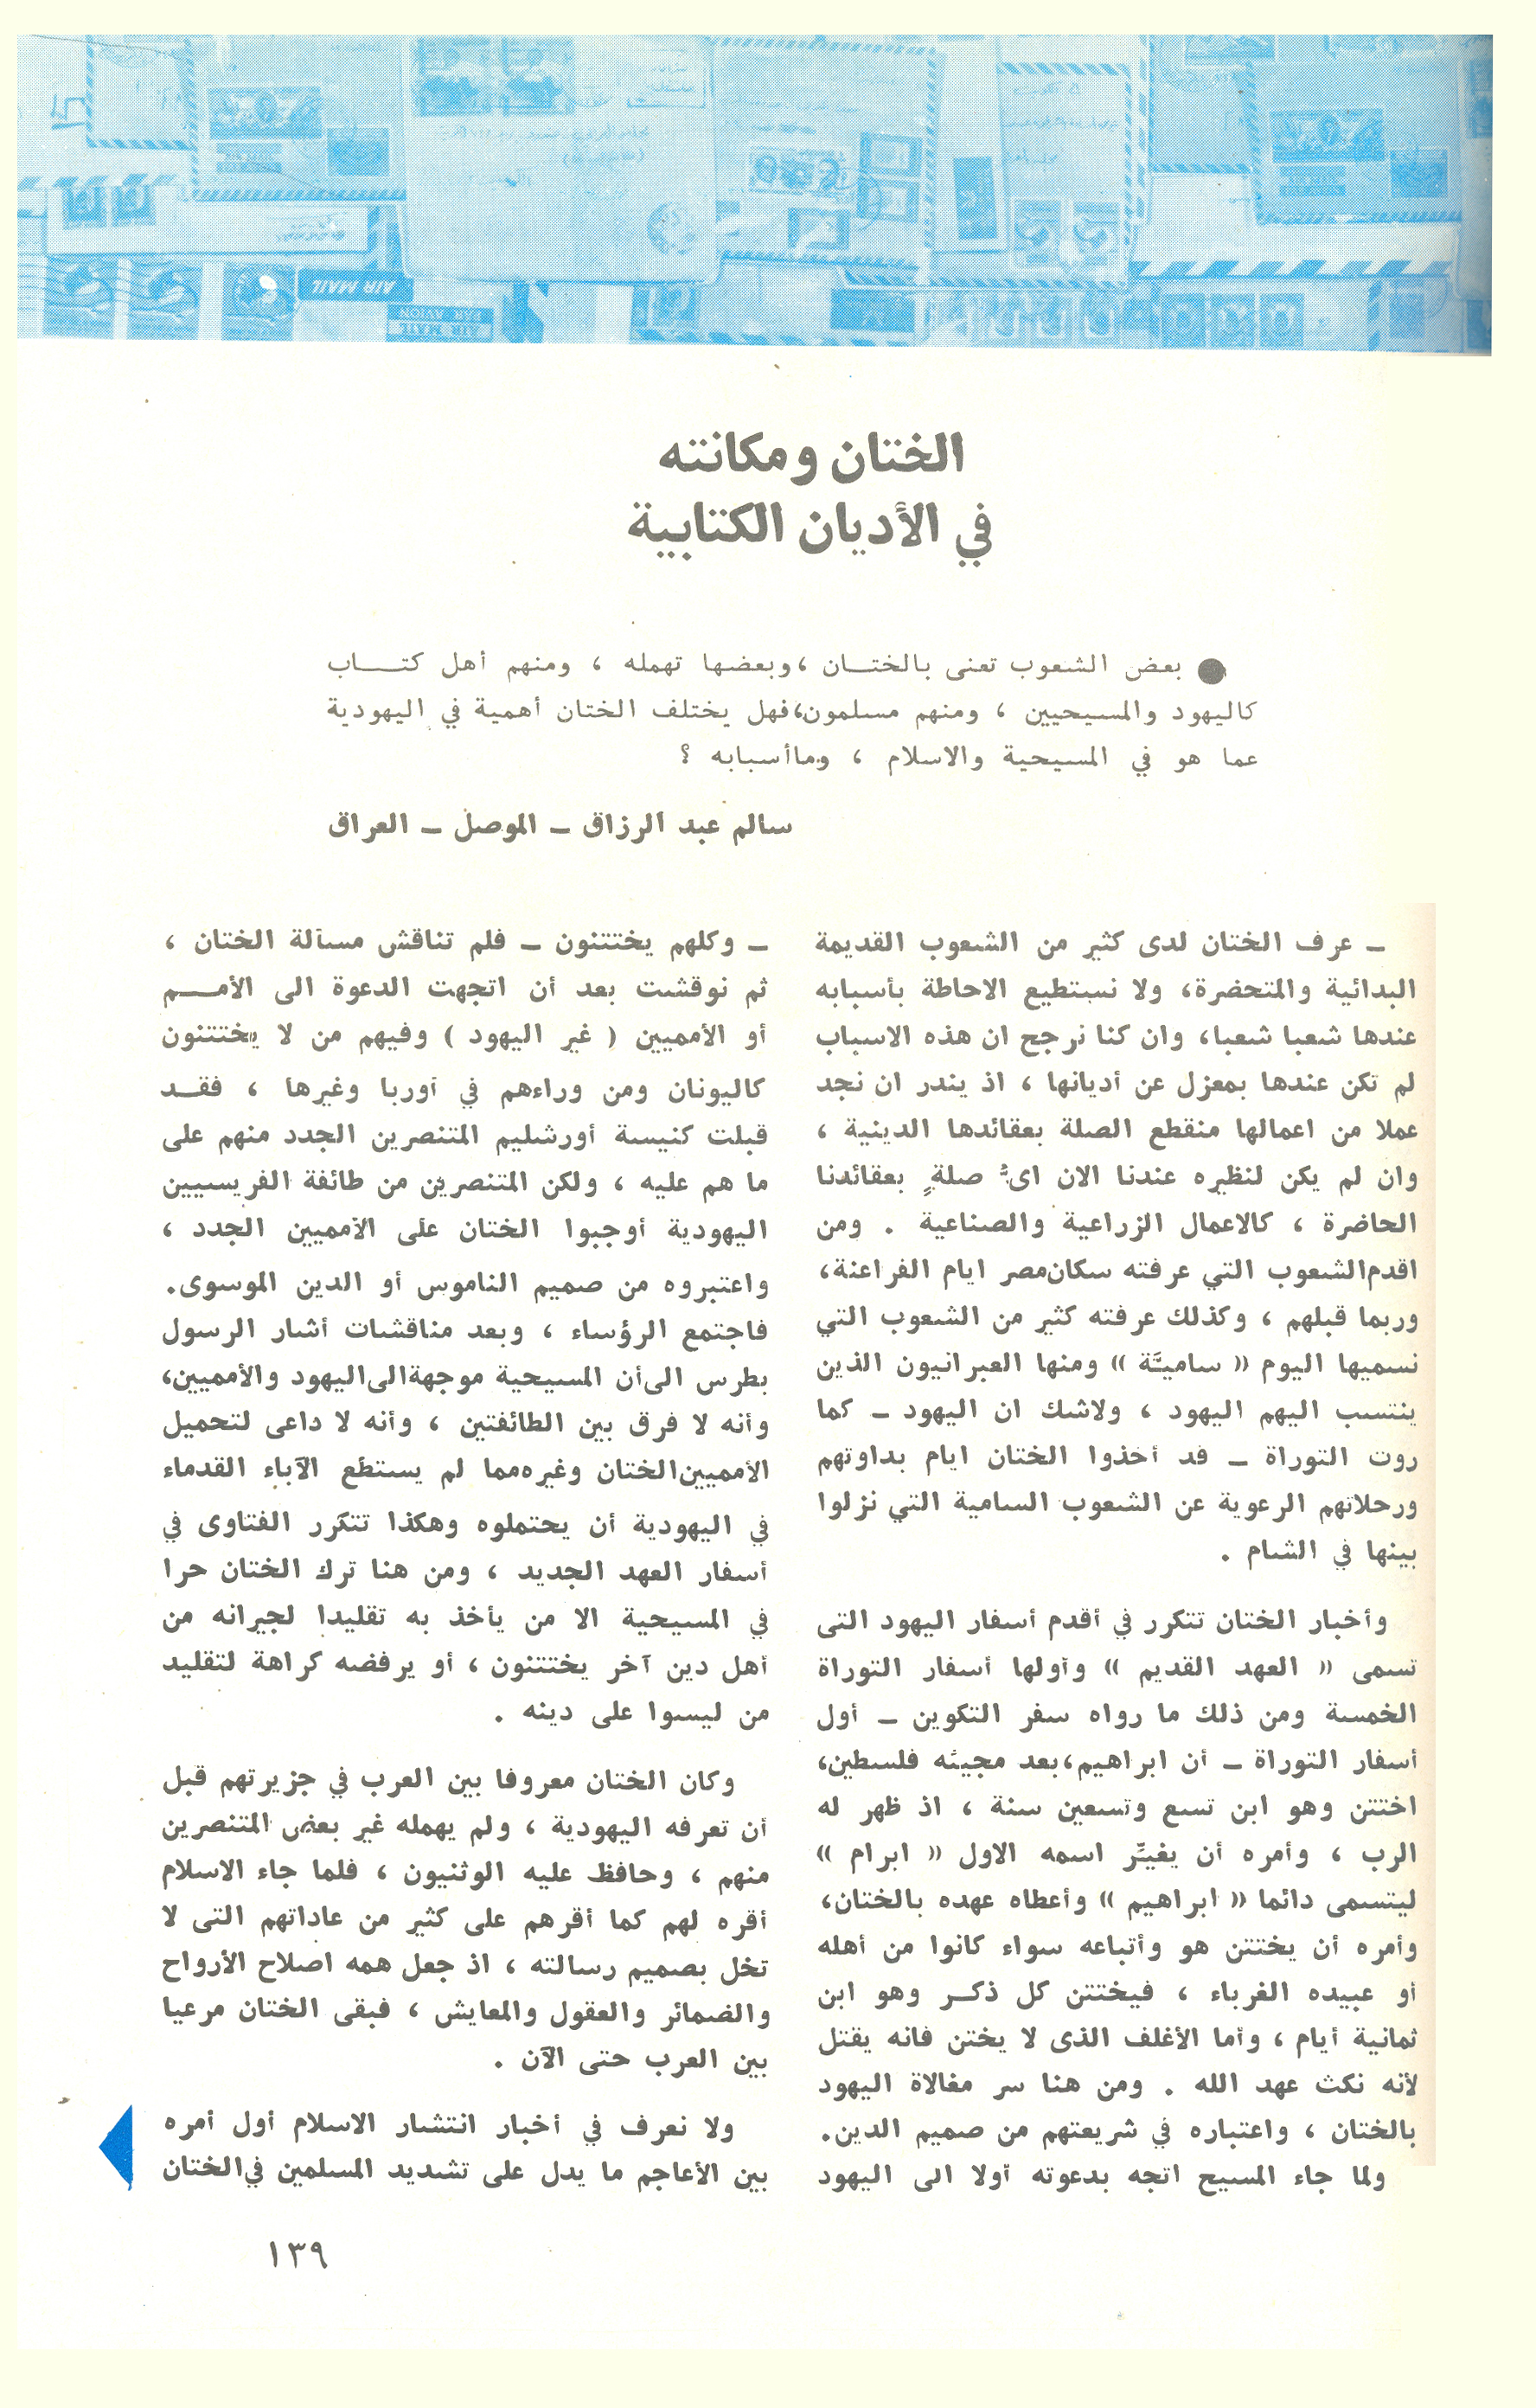 AIR MAIL
AIR MAIL
PAR AVION
الختان ومكانته
في الأديان الكتابية
● بعض الشعوب تعنى بالختــان ، وبعضها تهمله ، ومنهم أهل كتــاب
كاليهود والمسيحيين ، ومنهم مسلمون، فهل يختلف الختان أهمية في اليهودية
عما هو في المسيحية والاسلام ، وما أسبابه ؟
سالم عبد الرزاق – الموصل – العراق
– عرف الختان لدى كثير من الشعوب القديمة
البدائية والمتحضرة، ولا نستطيع الاحاطة بأسبابه
عندها شعبا شعبا، وان كنا نرجح ان هذه الاسباب
لم تكن عندها بمعزل عن أديانها ، اذ يندر ان نجد
عملا من اعمالها منقطع الصلة بعقائدها الدينية ،
وان لم يكن لنظيره عندنا الان اىُّ صلةٍ بعقائدنا
الحاضرة ، كالاعمال الزراعية والصناعية . ومن
اقدم الشعوب التي عرفته سكان مصر ايام الفراعنة،
وربما قبلهم ، وكذلك عرفته كثير من الشعوب التي
نسميها اليوم « ساميَّة » ومنها العبرانيون الذين
ينتسب اليهم اليهود ، ولاشك ان اليهود – كما
روت التوراة – قد أخذوا الختان ايام بداوتهم
ورحلاتهم الرعوية عن الشعوب السامية التي نزلوا
بينها في الشام .
وأخبار الختان تتكرر في أقدم أسفار اليهود التى
تسمى « العهد القديم » وأولها أسفار التوراة
الخمسة ومن ذلك ما رواه سفر التكوين – أول
أسفار التوراة – أن ابراهيم، بعد مجيئه فلسطين،
اختتن وهو ابن تسع وتسعين سنة ، اذ ظهر له
الرب ، وأمره أن يغيِّر اسمه الاول « ابرام »
ليتسمى دائما « ابراهيم » وأعطاه عهده بالختان،
وأمره أن يختتن هو وأتباعه سواء كانوا من أهله
أو عبيده الغرباء ، فيختتن كل ذكــر وهو ابن
ثمانية أيام ، وأما الأغلف الذى لا يختن فانه يقتل
لأنه نكث عهد الله . ومن هنا سر مغالاة اليهود
بالختان ، واعتباره في شريعتهم من صميم الدين.
ولما جاء المسيح اتجه بدعوته أولا الى اليهود
– وكلهم يختتنون – فلم تناقش مسألة الختان ،
ثم نوقشت بعد أن اتجهت الدعوة الى الأمــم
أو الأمميين ( غير اليهود ) وفيهم من لا يختتنون
كاليونان ومن وراءهم في أوربا وغيرها ، فقــد
قبلت كنيسة أورشليم المتنصرين الجدد منهم على
ما هم عليه ، ولكن المتنصرين من طائفة الفريسيين
اليهودية أوجبوا الختان على الأمميين الجدد ،
واعتبروه من صميم الناموس أو الدين الموسوى.
فاجتمع الرؤساء ، وبعد مناقشات أشار الرسول
بطرس الى أن المسيحية موجهة الى اليهود والأمميين،
وأنه لا فرق بين الطائفتين ، وأنه لا داعى لتحميل
الأمميين الختان وغيره مما لم يستطع الآباء القدماء
في اليهودية أن يحتملوه وهكذا تتكرر الفتاوى في
أسفار العهد الجديد ، ومن هنا ترك الختان حرا
في المسيحية الا من يأخذ به تقليدا لجيرانه من
أهل دين آخر يختتنون ، أو يرفضه كراهة لتقليد
من ليسوا على دينه .
وكان الختان معروفا بين العرب في جزيرتهم قبل
أن تعرفه اليهودية ، ولم يهمله غير بعض المتنصرين
منهم ، وحافظ عليه الوثنيون ، فلما جاء الاسلام
أقره لهم كما أقرهم على كثير من عاداتهم التى لا
تخل بصميم رسالته ، اذ جعل همه اصلاح الأرواح
والضمائر والعقول والمعايش ، فبقى الختان مرعيا
بين العرب حتى الآن .
ولا نعرف في أخبار انتشار الاسلام أول أمره
بين الأعاجم ما يدل على تشديد المسلمين في الختان
١٣٩